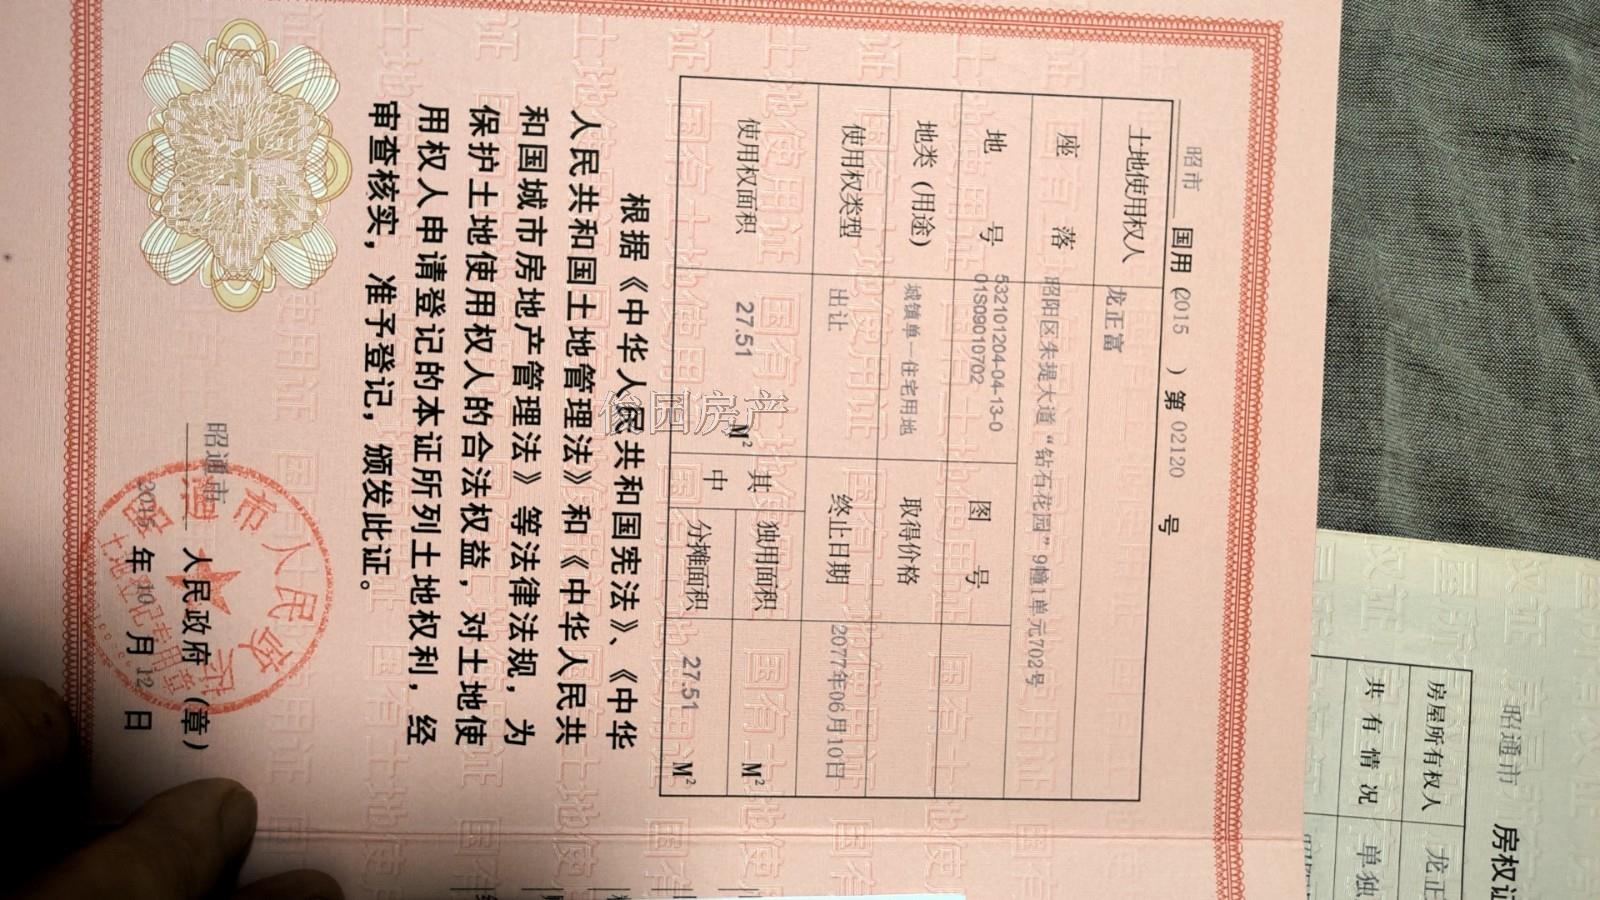 昭市 国用（2015 ）第 02120 号
土地使用权人 龙正富
座 落 昭阳区朱提大道“钻石花园”9幢1单元702号
地 号 532101204-04-13-0
01S09010702 图 号
地类（用途） 城镇单一住宅用地 取得价格
使用权类型 出让 终止日期 2077年06月10日
使用权面积 27.51 M² 其中 独用面积 M²
分摊面积 27.51 M²
根据《中华人民共和国宪法》、《中华
人民共和国土地管理法》和《中华人民共
和国城市房地产管理法》等法律法规，为
保护土地使用权人的合法权益，对土地使
用权人申请登记的本证所列土地权利，经
审查核实，准予登记，颁发此证。
昭通市 人民政府（章）
2015 年 10 月 12 日
俊园房产
昭通市 房权证
房屋所有权人 龙正
共有情况 单独